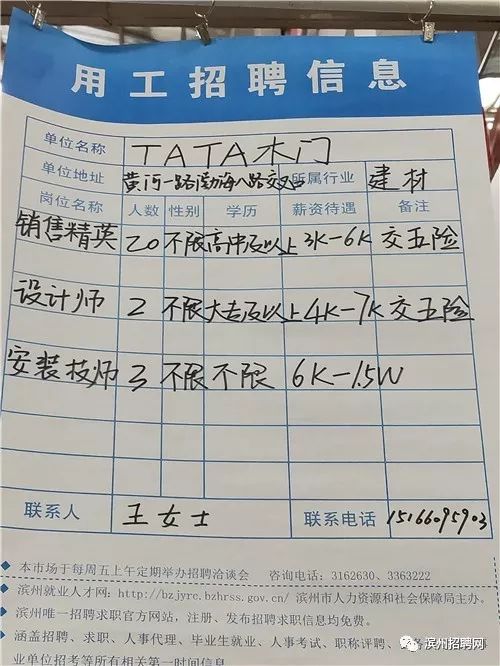 用工招聘信息
单位名称 TATA木门
单位地址 黄河一路渤海八路交叉口 所属行业 建材
岗位名称 人数 性别 学历 薪资待遇 备注
销售精英 20 不限 高中及以上 3K-6K 交五险
设计师 2 不限 大专及以上 4K-7K 交五险
安装技师 3 不限 不限 6K-1.5W
联系人 王女士 联系电话 15166095903
◆ 本市场于每周五上午定期举办招聘洽谈会 咨询电话：3162630、3363222
◆ 滨州就业人才网：http://bzjyrc.bzhrss.gov.cn/ 滨州市人力资源和社会保障局主办。
◆ 滨州唯一招聘求职官方网站，注册、发布招聘求职信息均免费。
◆ 涵盖招聘、求职、人事代理、毕业生就业、人事考试、职称评聘、
业单位招考等所有相关第一时间信息
滨州招聘网